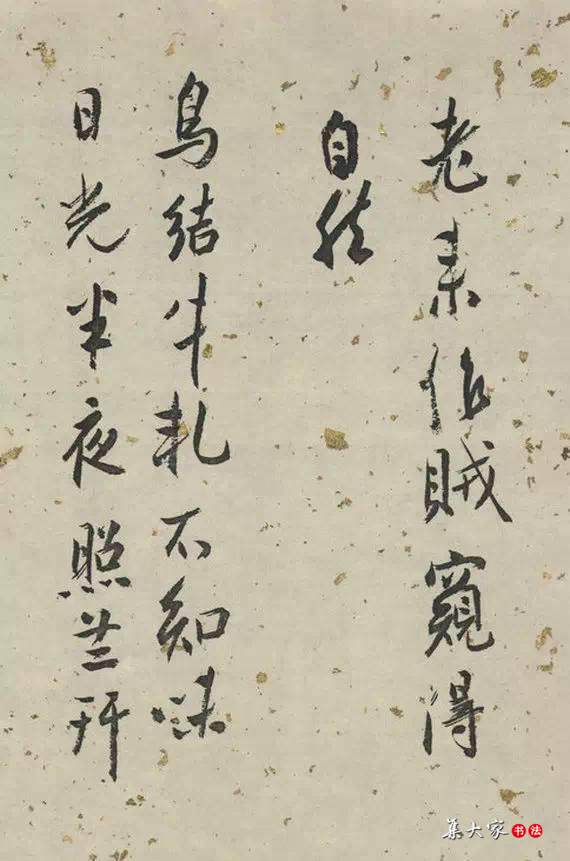 老来作贼窥得
自然
鸟结牛札不知味
日光半夜照兰玕
集大家书法